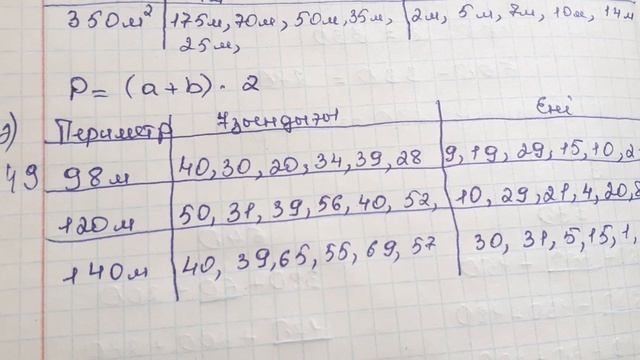 350м² 175м, 70м, 50м, 35м, 2м, 5м, 7м, 10м, 14м
25м,
P = (a+b) · 2
Периметр Ұзындығы Ені
49 98м 40, 30, 20, 34, 39, 28 9, 19, 29, 15, 10, 2
120м 50, 31, 39, 56, 40, 52, 10, 29, 21, 4, 20, 8
140м 40, 39, 65, 55, 69, 57 30, 31, 5, 15, 1,